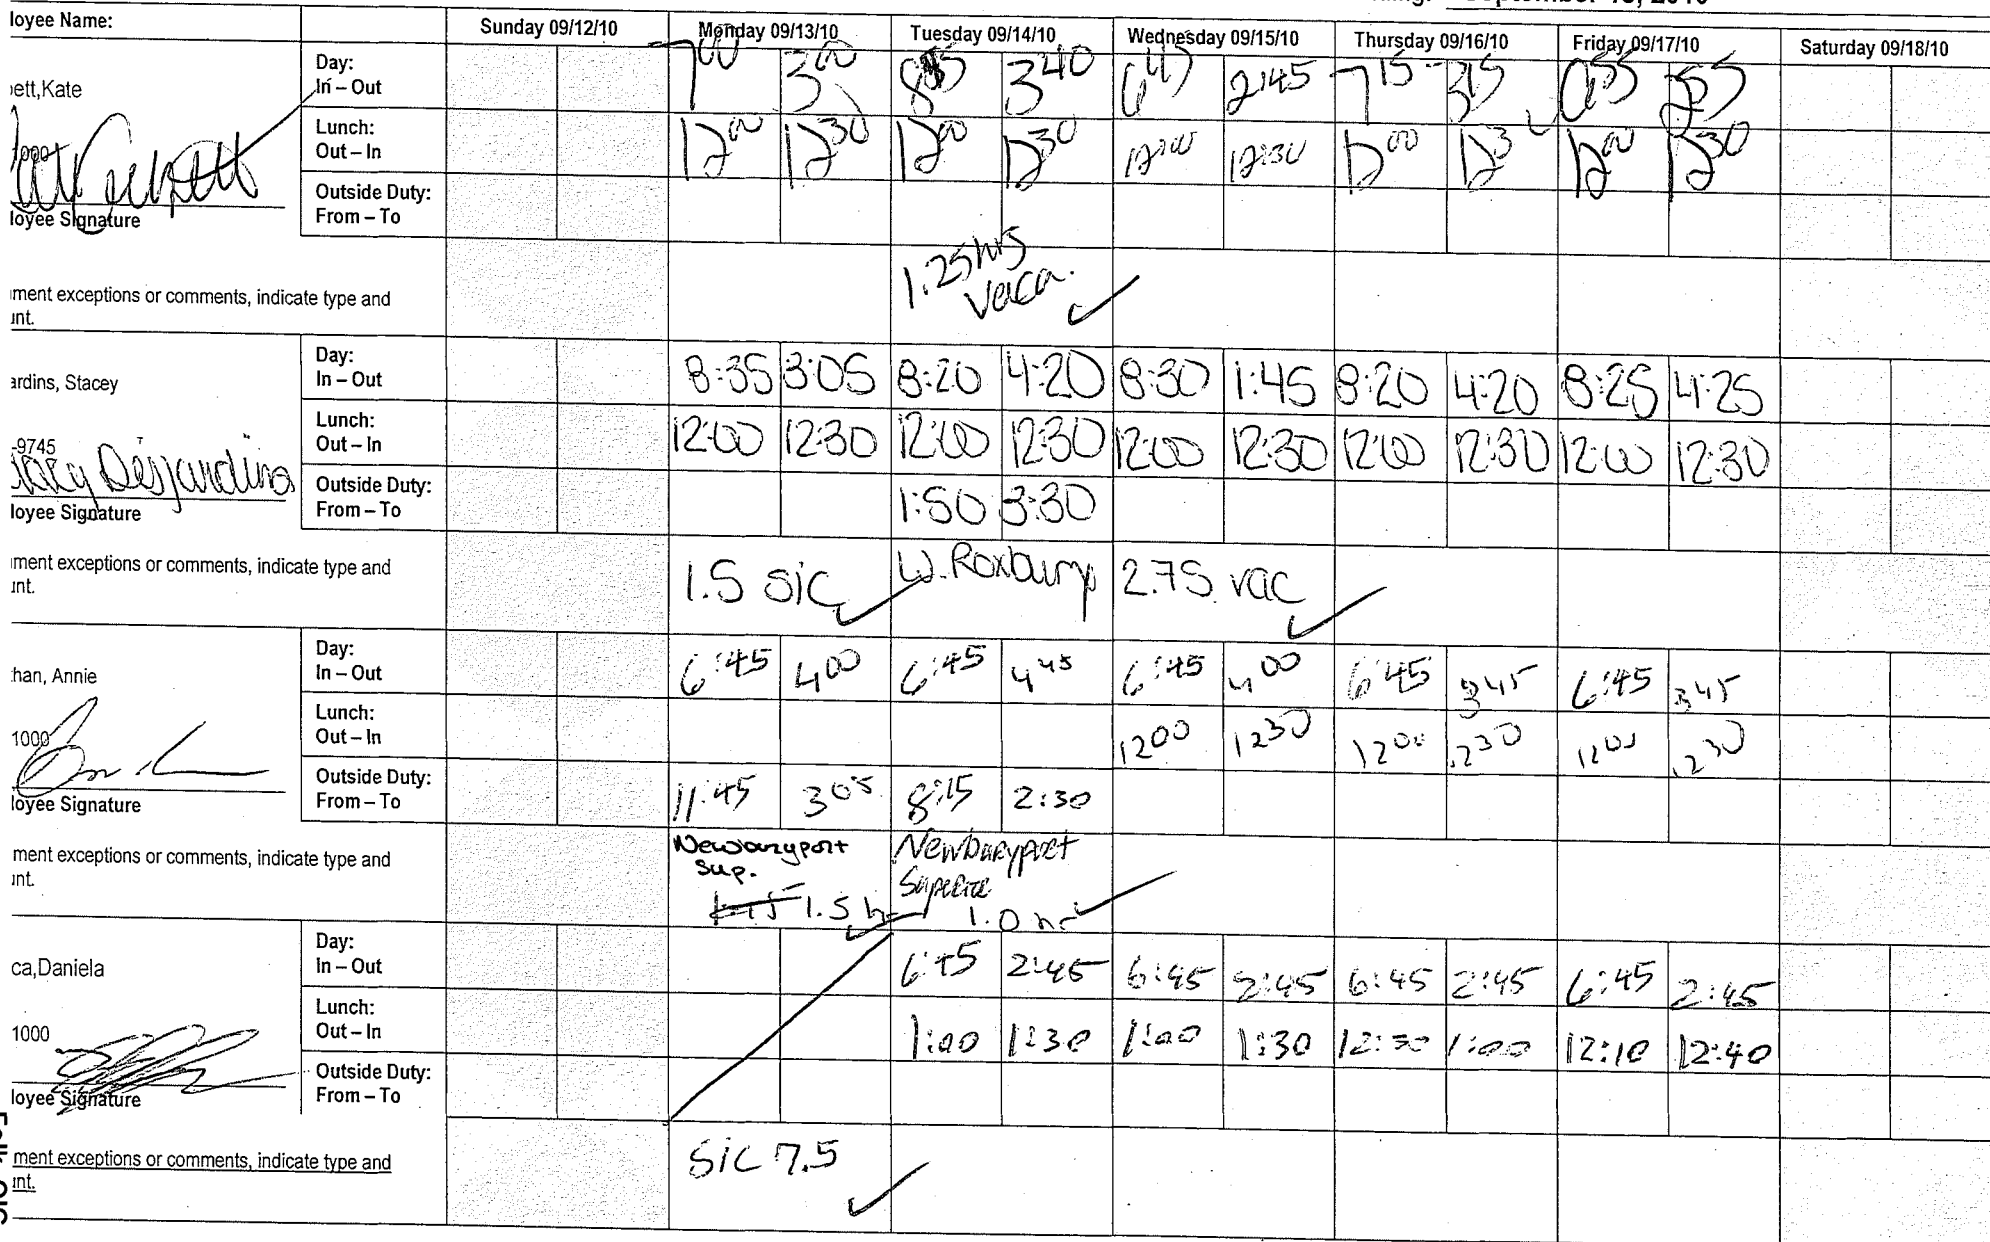 loyee Name:
Sunday 09/12/10 Monday 09/13/10 Tuesday 09/14/10 Wednesday 09/15/10 Thursday 09/16/10 Friday 09/17/10 Saturday 09/18/10
ett,Kate
Day:
In – Out
7 00 3 00 3 40 2:45 7 15 3 15 6 55 2 55
Lunch:
Out – In
12 00 12 30 12 00 12 30 12:00 12:30 12 00 12 3 12 00 12 30
Outside Duty:
From – To
loyee Signature
1.25 hrs
vaca.
ment exceptions or comments, indicate type and
int.
ardins, Stacey
Day:
In – Out
8:35 3:05 8:20 4:20 8:30 1:45 8:20 4:20 8:25 4:25
Lunch:
Out – In
12:00 12:30 12:00 12:30 12:00 12:30 12:00 12:30 12:00 12:30
-9745
Desjardins
Outside Duty:
From – To
1:50 3:30
loyee Signature
ment exceptions or comments, indicate type and
int.
1.5 sic W. Roxbury 2.75 vac
han, Annie
Day:
In – Out
6:45 4 00 6:45 4 45 6:45 4 00 6:45 3 45 6:45 3 45
Lunch:
Out – In
12 00 12 30 12 00 12 30 12 00 12 30
1000
Outside Duty:
From – To
11:45 3 05 8:15 2:30
loyee Signature
ment exceptions or comments, indicate type and
int.
Newburyport
Sup.
1.5 hr
Newburyport
Superior
1.0 hr
ca,Daniela
Day:
In – Out
6:45 2:45 6:45 2:45 6:45 2:45 6:45 2:45
Lunch:
Out – In
1:00 1:30 1:00 1:30 12:30 1:00 12:10 12:40
1000
Outside Duty:
From – To
loyee Signature
ment exceptions or comments, indicate type and
int.
sic 7.5